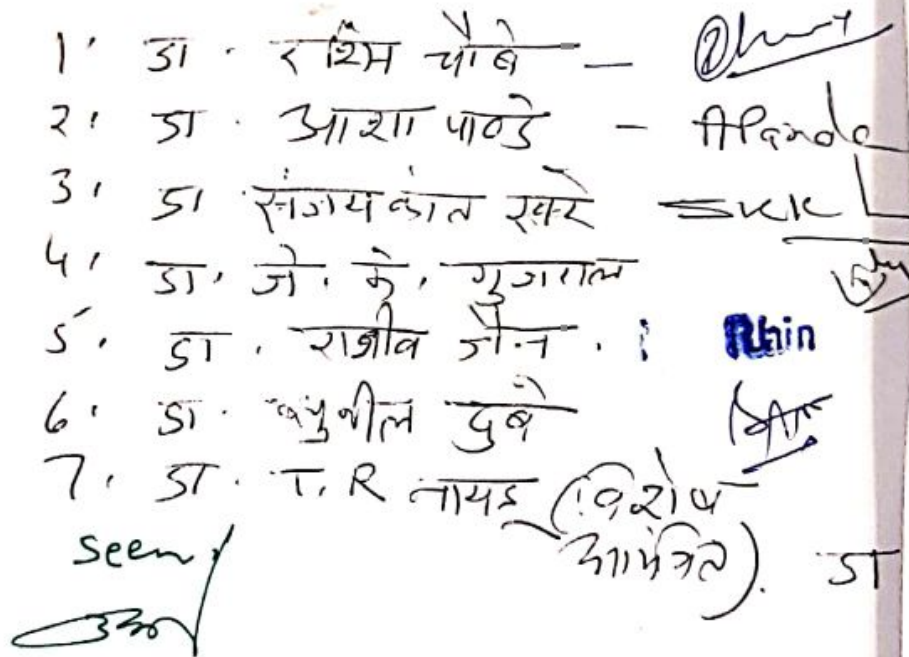 1. डा. रश्मि चौबे -
2. डा. आशा पाण्डे - APande
3. डा संजयकांत खरे SKK
4. डा. जे. के. गुजराल
5. डा. राजीव जैन.
6. डा. सुनील दुबे
7. डा. T.R नायडू (विशेष
आमंत्रित). डा
Seen